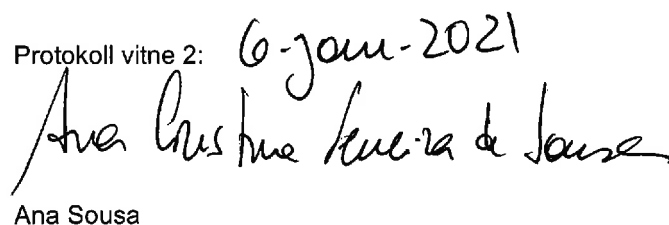 Protokoll vitne 2: 6-jan-2021
Ana Cristina Ferreira de Sousa
Ana Sousa